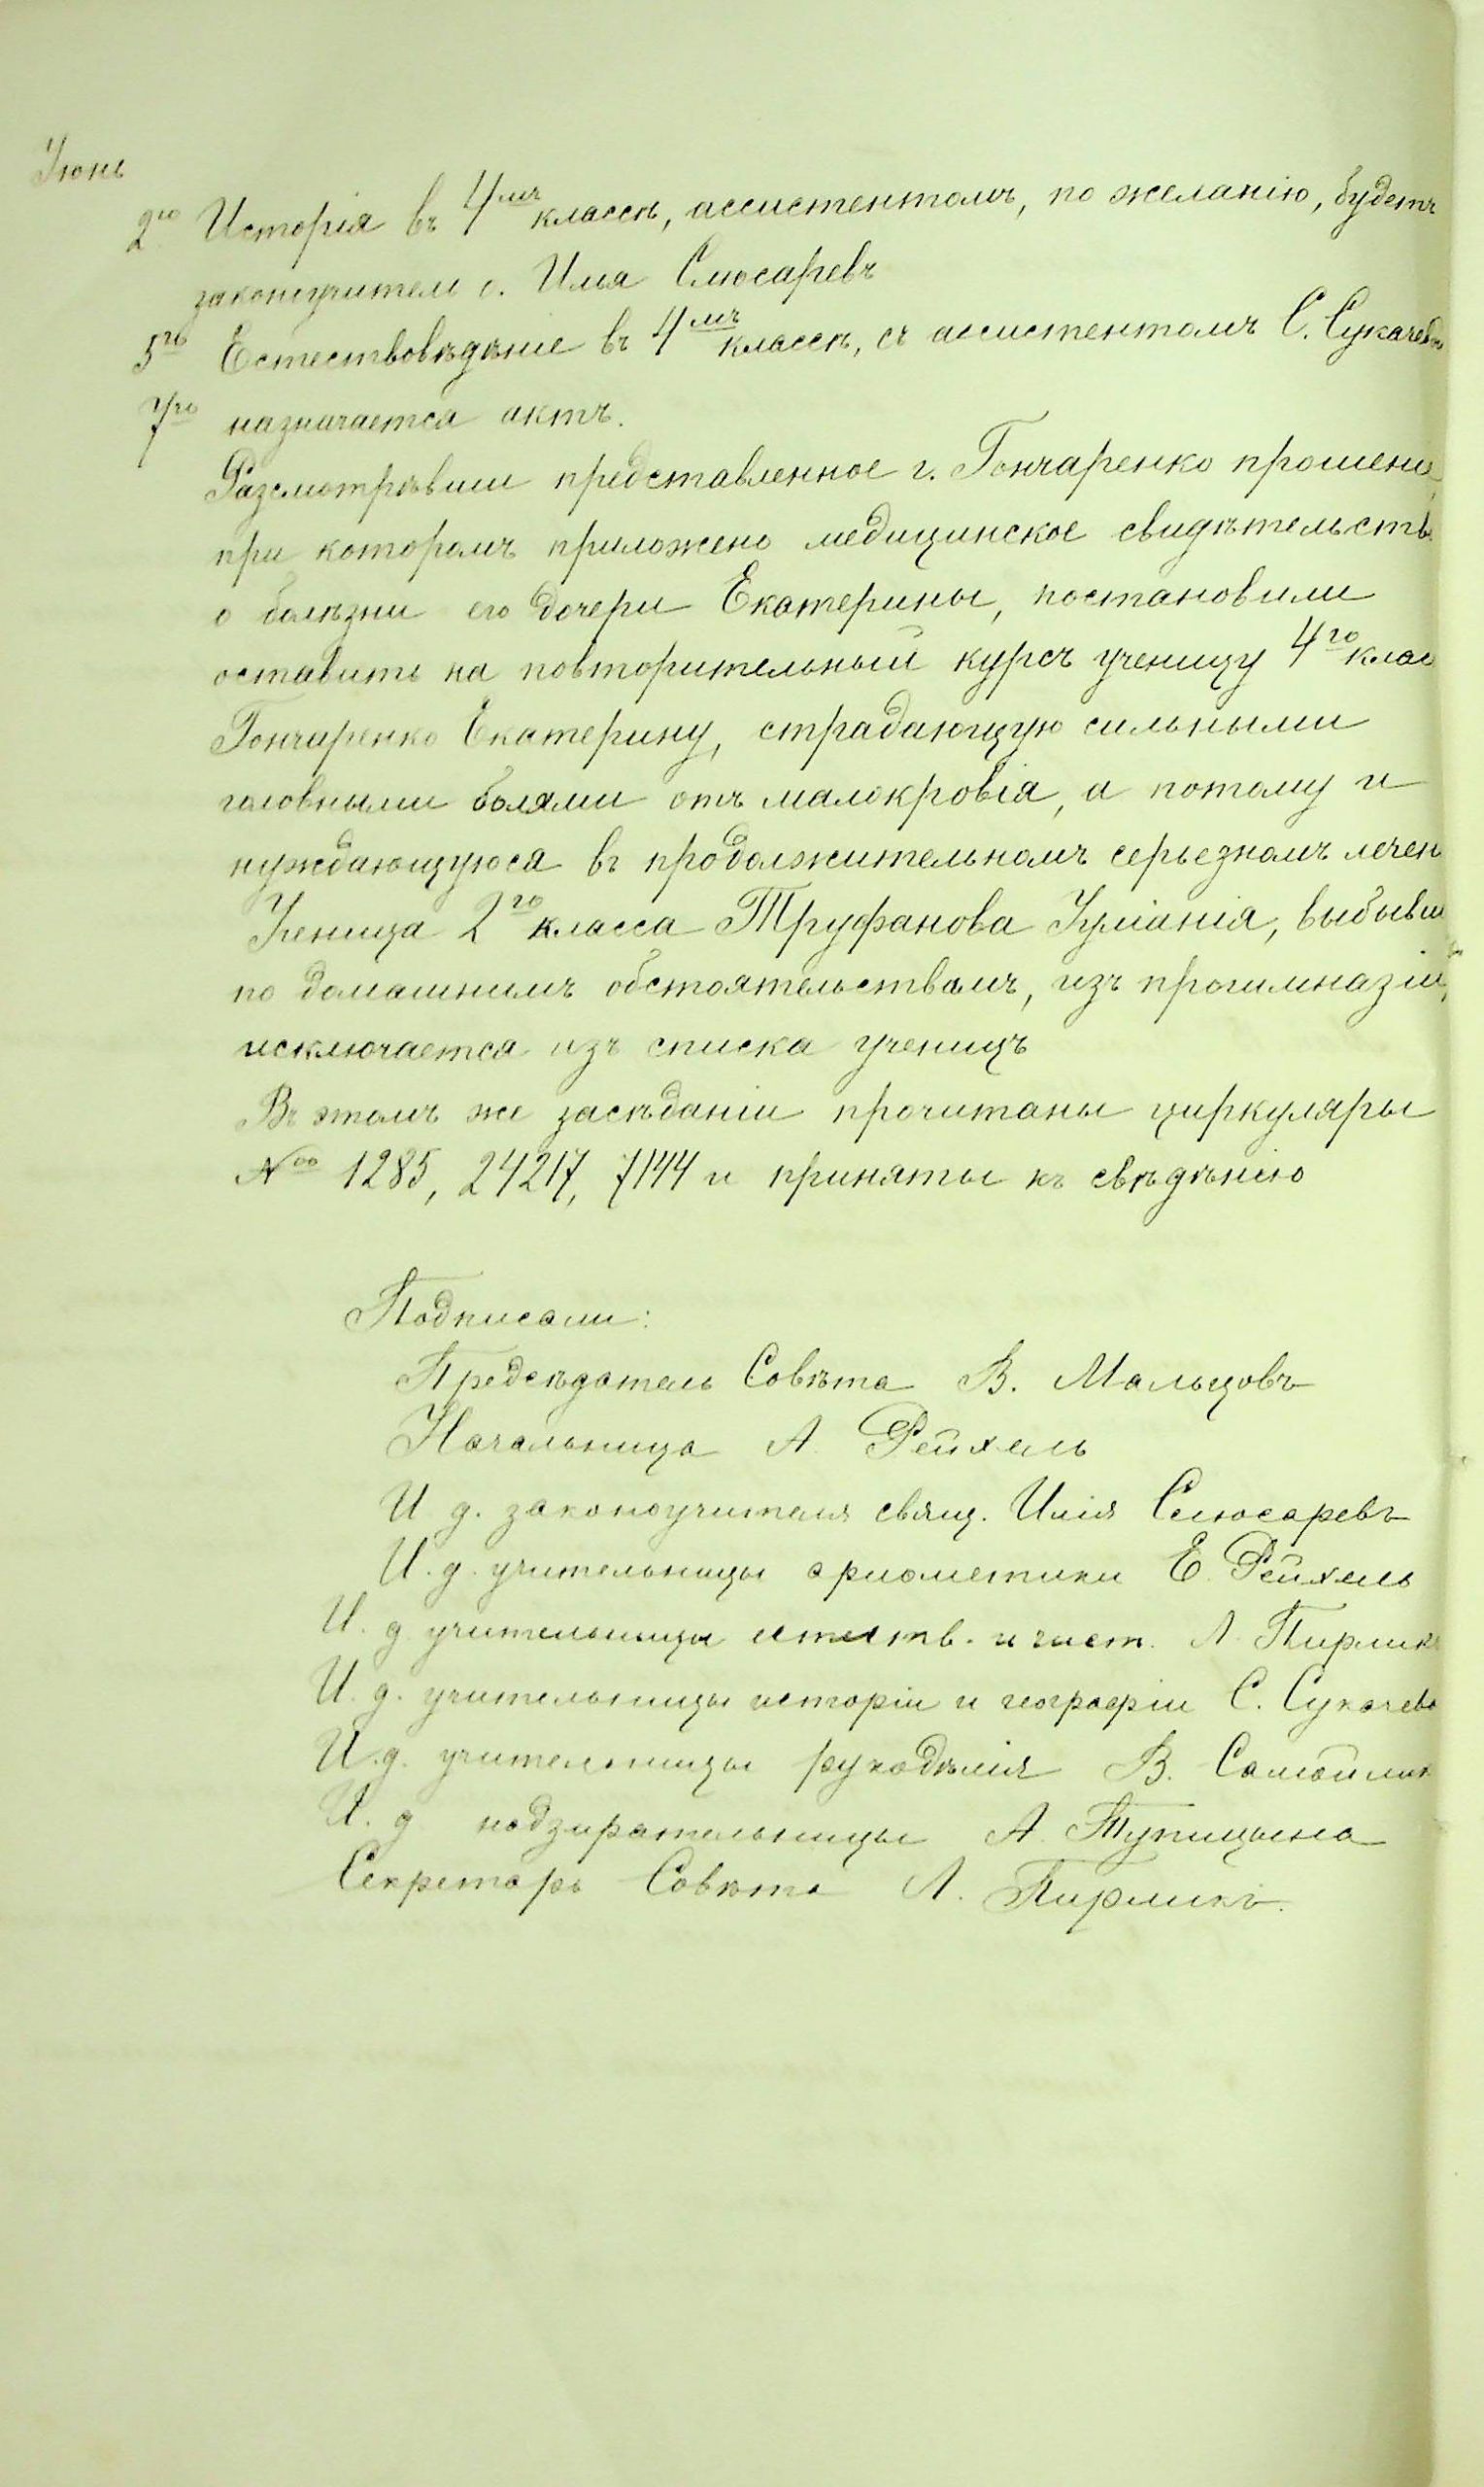 Іюнь
2го Исторія въ 4мъ классѣ, ассистентомъ, по желанію, будетъ
законоучитель о. Илья Слюсаревъ
5го Естествовѣдѣніе въ 4мъ классѣ, съ ассистентомъ С. Сукачев
7го назначается актъ.
Разсмотрѣвши представленное г. Гончаренко прошені
при которомъ приложено медицинское свидѣтельств
о болѣзни его дочери Екатерины, постановили
оставить на повторительный курсъ ученицу 4го клас
Гончаренко Екатерину, страдающую сильными
головными болями отъ малокровія, а потому и
нуждающуюся въ продолжительномъ серьезномъ лечен
Ученица 2го класса Труфанова Іуліанія, выбывш
по домашнимъ обстоятельствамъ, изъ прогимназіи,
исключается изъ списка ученицъ
Въ этомъ же засѣданіи прочитаны циркуляры
№оо 1285, 24217, 7144 и приняты къ свѣдѣнію
Подписали:
Предсѣдатель Совѣта В. Мальцовъ
Начальница А. Рейхель
И. д. законоучителя свящ. Илія Слюсаревъ
И. д. учительницы ариѳметики Е. Рейхель
И. д. учительницы естеств. и чист. Л. Пирлик
И. д. учительницы исторіи и географіи С. Сукачева
И. д. учительницы рукодѣлія В. Самойлик
И. д. надзирательницы А. Тупицына
Секретарь Совѣта Л. Пирликъ.